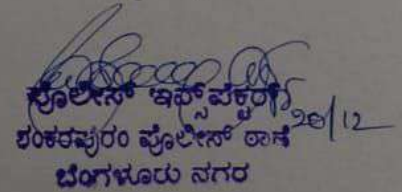 ಪೊಲೀಸ್ ಇನ್ಸ್‌ಪೆಕ್ಟರ್
20/12
ಶಂಕರಪುರಂ ಪೊಲೀಸ್ ಠಾಣೆ
ಬೆಂಗಳೂರು ನಗರ